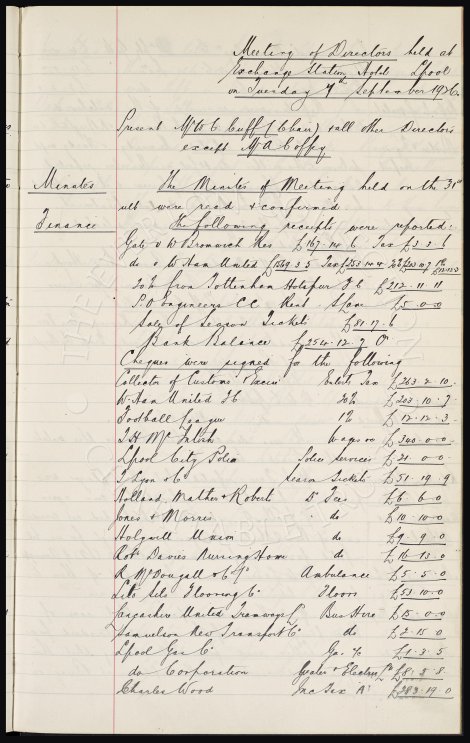 Meeting of Directors held at
Exchange Station Hotel Lpool
on Tuesday 7th September 1926.
Present Mr W C Cuff (Chair) & all other Directors
except Mr A Coffey
Minutes
The Minutes of Meeting held on the 31st
ult were read & confirmed
Finance
The following receipts were reported:
Gate v W Bromwich Res £167-14-6 Tax £3-3-6
do v W Ham United £1569-3-5 Tax
20% from Tottenham Hotspur F C £212-11-11
P.O. Engineers C C Rent £5-0-0
Sale of Season Tickets £81-17-6
Bank Balance £254-12-9 Or
Cheques were signed for the following
Collector of Customs & Excise Entert Tax £263-2-10
W. Ham United F C 20% £203-10-7
Football League 1% £12-12-3
T. H. McIntosh Wages £340-0-0
Lpool City Police Police Services £21-0-0
T Lyon & Co Season Tickets £51-19-9
Holland, Mather & Roberts Dr Fees £6-6-0
Jones & Morris do £10-10-0
Union do £9-9-0
Robt Davies Nursing Home do £16-13-0
R McDougall & Co Ld Ambulance £5-5-0
Flooring Co Floors £53-10-0
Lancashire United Tramways Ld Bus Hire £15-0-0
Samuelson New Transport Co do £2-15-0
Lpool Gas Co Gas £1-3-5
do Corporation Water & Electric £8-3-8
Charles Wood Inc Tax A £283-19-0